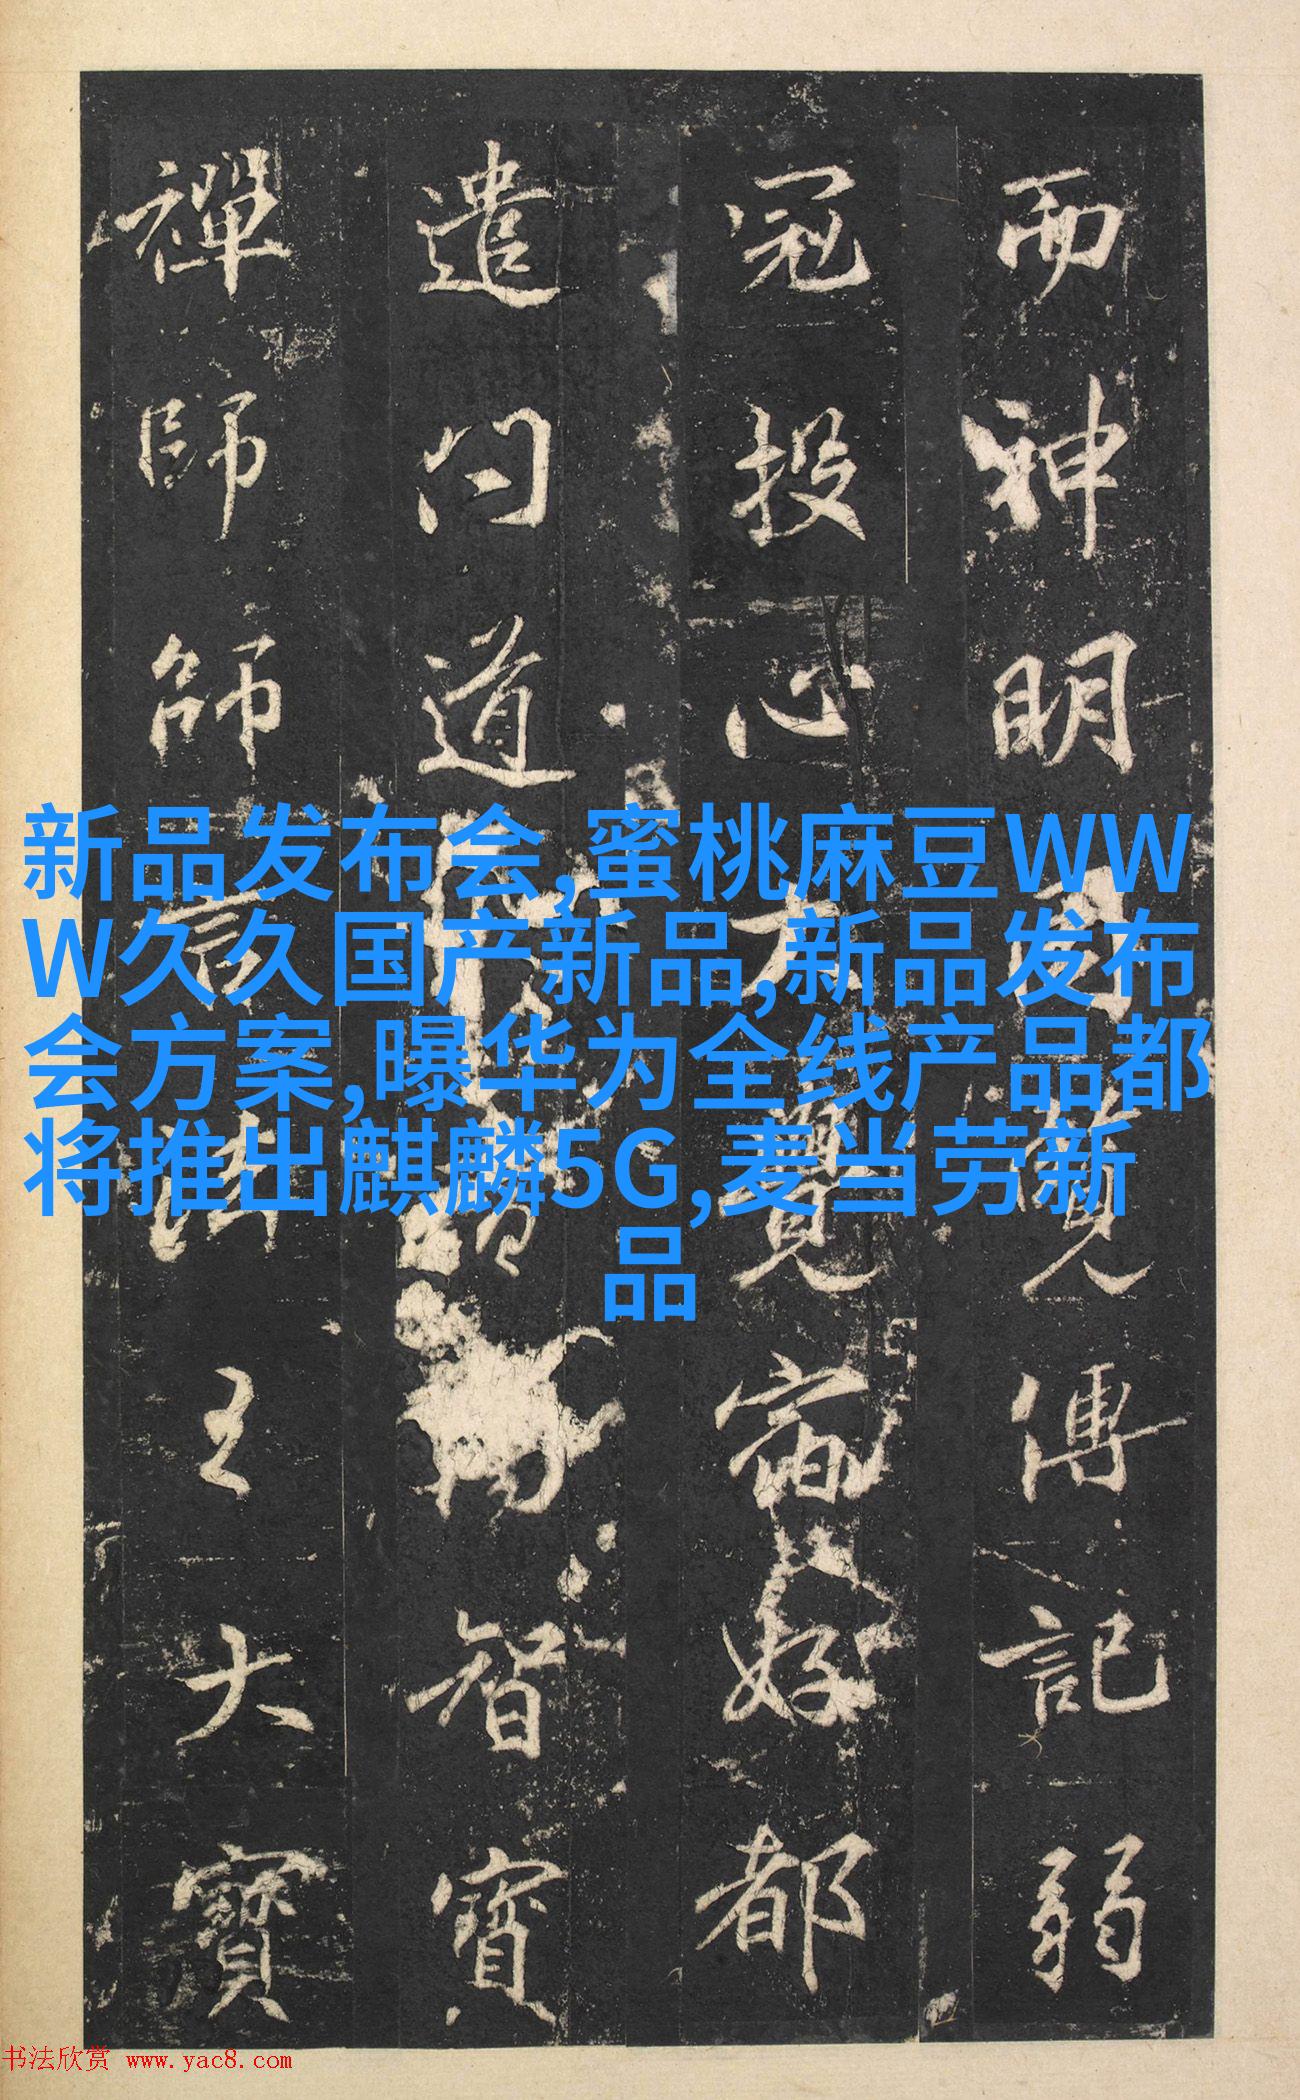 而神明覽傳記弱
冠投心宿好都
遣問道智寶
禪師師言法王大寶
新品发布会,蜜桃麻豆WW
W久久国产新品,新品发布
会方案,曝华为全线产品都
将推出麒麟5G,麦当劳新
品
书法欣赏 www.yac8.com